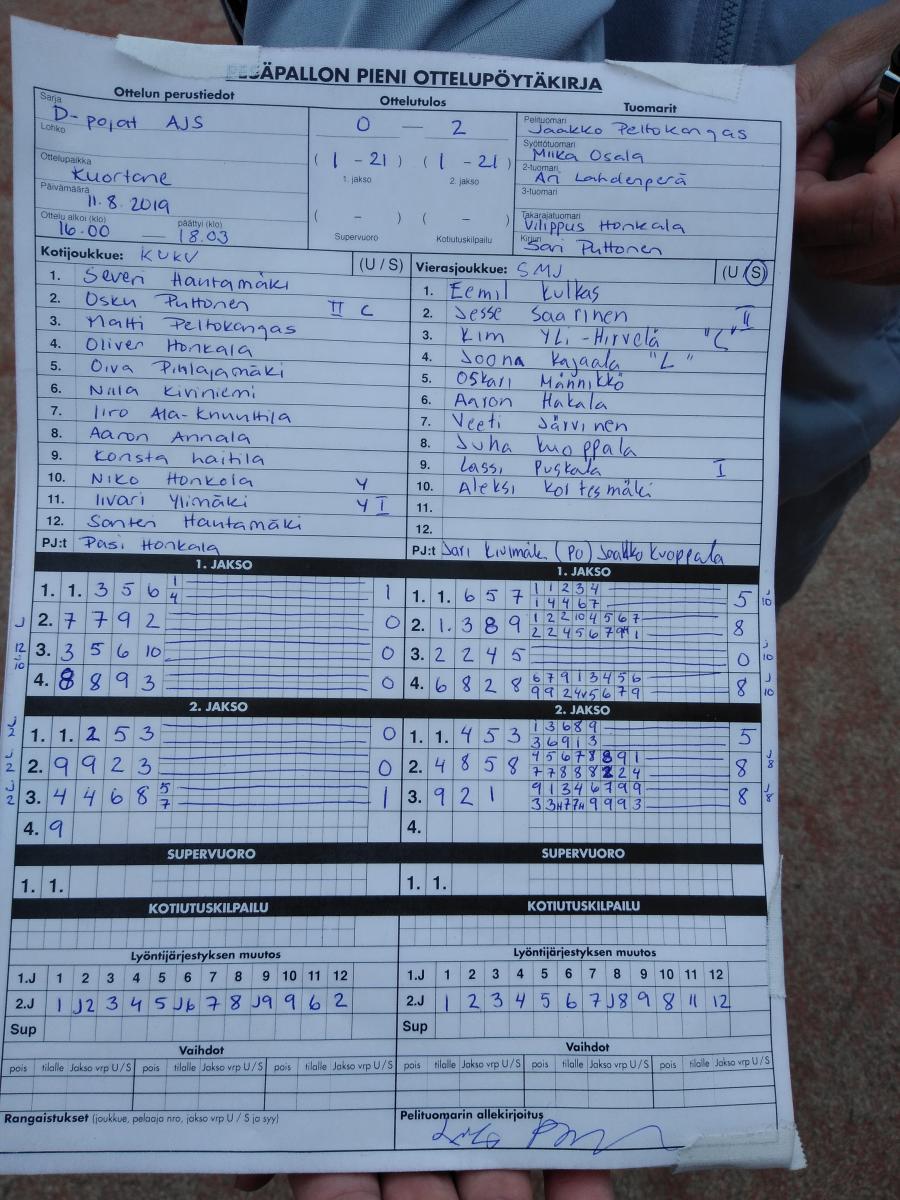 PESÄPALLON PIENI OTTELUPÖYTÄKIRJA
Ottelun perustiedot
Ottelutulos
Tuomarit
Sarja D-pojat AJS
Lohko
Ottelupaikka Kuortane
Päivämäärä 11.8.2019
Ottelu alkoi (klo) 16.00 — päättyi (klo) 18.03
0 — 2
( 1 - 21 ) ( 1 - 21 )
1. jakso 2. jakso
( - ) ( - )
Supervuoro Kotiutuskilpailu
Pelituomari Jaakko Peltokangas
Syöttötuomari Miika Osala
2-tuomari Ari Lahdenperä
3-tuomari
Takarajatuomari Vilippus Honkala
Kirjuri Sari Puttonen
Kotijoukkue: KUKV (U / S)
1. Severi Hautamäki
2. Osku Puttonen II C
3. Matti Peltokangas
4. Oliver Honkala
5. Oiva Pihlajamäki
6. Niila Kiviniemi
7. Iiro Ala-Knuuttila
8. Aaron Annala
9. Konsta Haitila
10. Niko Honkola Y
11. Iivari Ylimäki Y I
12. Santeri Hautamäki
PJ:t Pasi Honkala
Vierasjoukkue: SMJ (U / S)
1. Eemil Kulkas
2. Jesse Saarinen II
3. Kim Yli-Hirvelä "C"
4. Joona Kajaala "L"
5. Oskari Männikkö
6. Aaron Hakala
7. Veeti Järvinen
8. Juha Kuoppala
9. Lassi Puskala I
10. Aleksi Koitesmäki
11.
12.
PJ:t Jari Kivimäki (PO) Jaakko Kuoppala
1. JAKSO
1. 1. 3 5 6 1 4 1
2. 7 7 9 2 0
3. 3 5 6 10 0
4. 8 8 9 3 0
2. JAKSO
1. 1. 2 5 3 0
2. 9 9 2 3 0
3. 4 4 6 8 5 7 1
4. 9
SUPERVUORO
1. 1.
KOTIUTUSKILPAILU
1. JAKSO
1. 1. 6 5 7 1 1 2 3 4 5
1 4 4 6 7
2. 1. 3 8 9 1 2 2 10 4 5 6 7 8
3. 2 2 4 5 0
4. 6 8 2 8 6 7 9 1 3 4 5 6 8
2. JAKSO
1. 1. 4 5 3 1 3 6 8 9 5
3 6 9 1 3
2. 4 8 5 8 4 5 6 7 8 8 9 1 8
7 7 8 8 8 2 2 4
3. 9 2 1 9 1 3 4 6 7 9 9 8
4.
SUPERVUORO
1. 1.
KOTIUTUSKILPAILU
Lyöntijärjestyksen muutos
1.J 1 2 3 4 5 6 7 8 9 10 11 12
2.J 1 J2 3 4 5 J6 7 8 J9 9 6 2
Sup
Vaihdot
pois tilalle Jakso vrp U / S pois tilalle Jakso vrp U / S pois tilalle Jakso vrp U / S
Rangaistukset (joukkue, pelaaja nro, jakso vrp U / S ja syy)
Lyöntijärjestyksen muutos
1.J 1 2 3 4 5 6 7 8 9 10 11 12
2.J 1 2 3 4 5 6 7 J8 9 8 11 12
Sup
Vaihdot
pois tilalle Jakso vrp U / S pois tilalle Jakso vrp U / S pois tilalle Jakso vrp U / S
Pelituomarin allekirjoitus